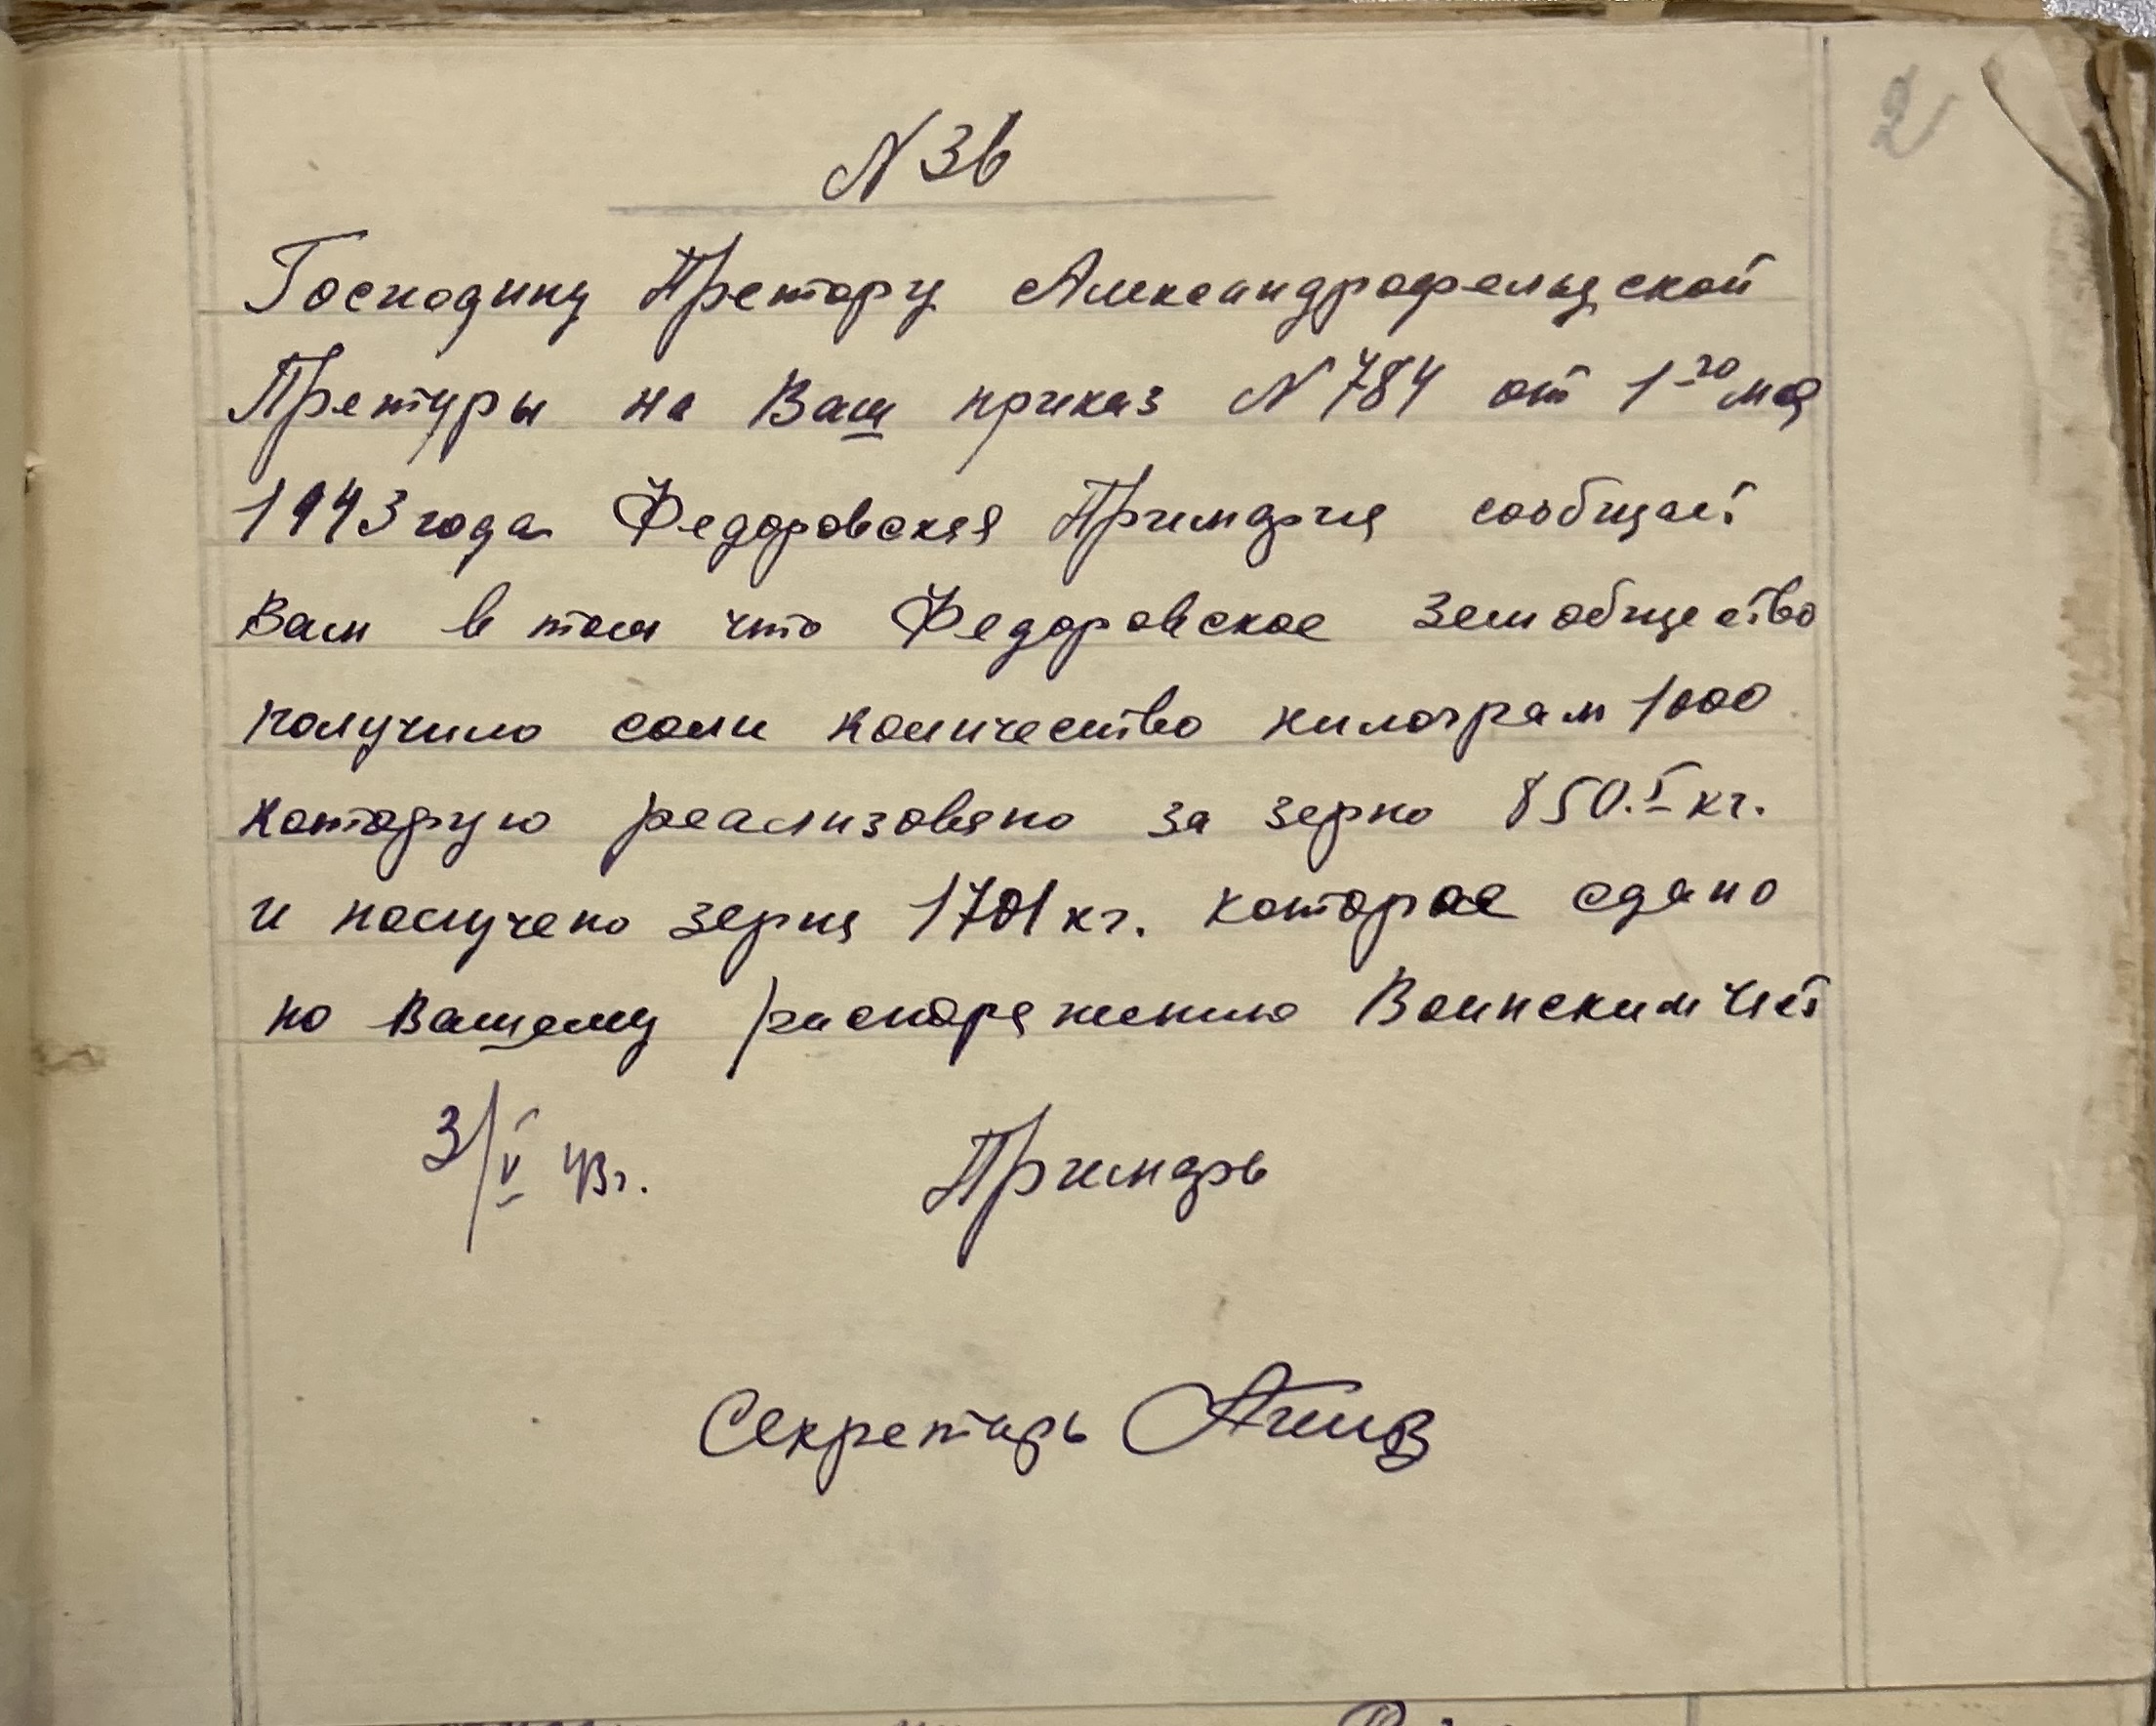 2
N 36
Господину Претору Александрофельдской
Претуры на Ваш приказ N 784 от 1-го мая
1943 года Федоровская Примария сообщает
Вам в том что ФедоровскоеЗемобщество
получило соли количество килограм 1000
которую реализовано за зерно 850.5 кг.
и получено зерна 1701 кг. которое сдано
по Вашему распоряжению Воинским Част
3/V 43 г. Примарь
Секретарь